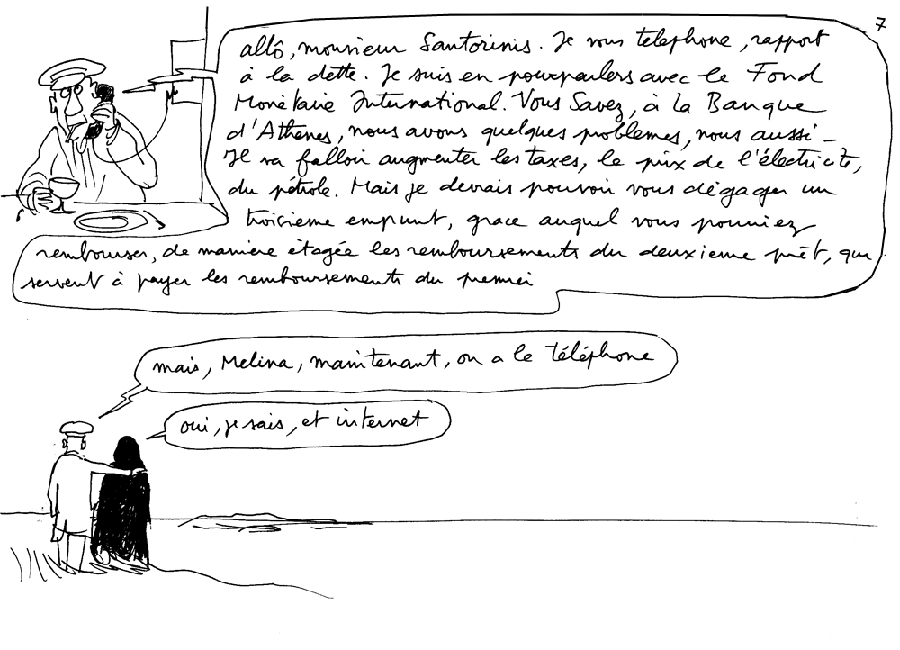 7
allô, monsieur Santorinis. Je vous telephone, rapport
à la dette. Je suis en pourparlers avec le Fond
Monétaire International. Vous Savez, à la Banque
d'Athenes, nous avons quelques problemes, nous aussi _
Il va falloir augmenter les taxes, le prix de l'électricité,
du pétrole. Mais je devrais pouvoir vous dégager un
troisieme emprunt, grace auquel vous pourriez
rembourser, de maniere étagée les remboursements du deuxieme prêt, qui
servent à payer les remboursements du premier
mais, Melina, maintenant, on a le téléphone
oui, je sais, et internet